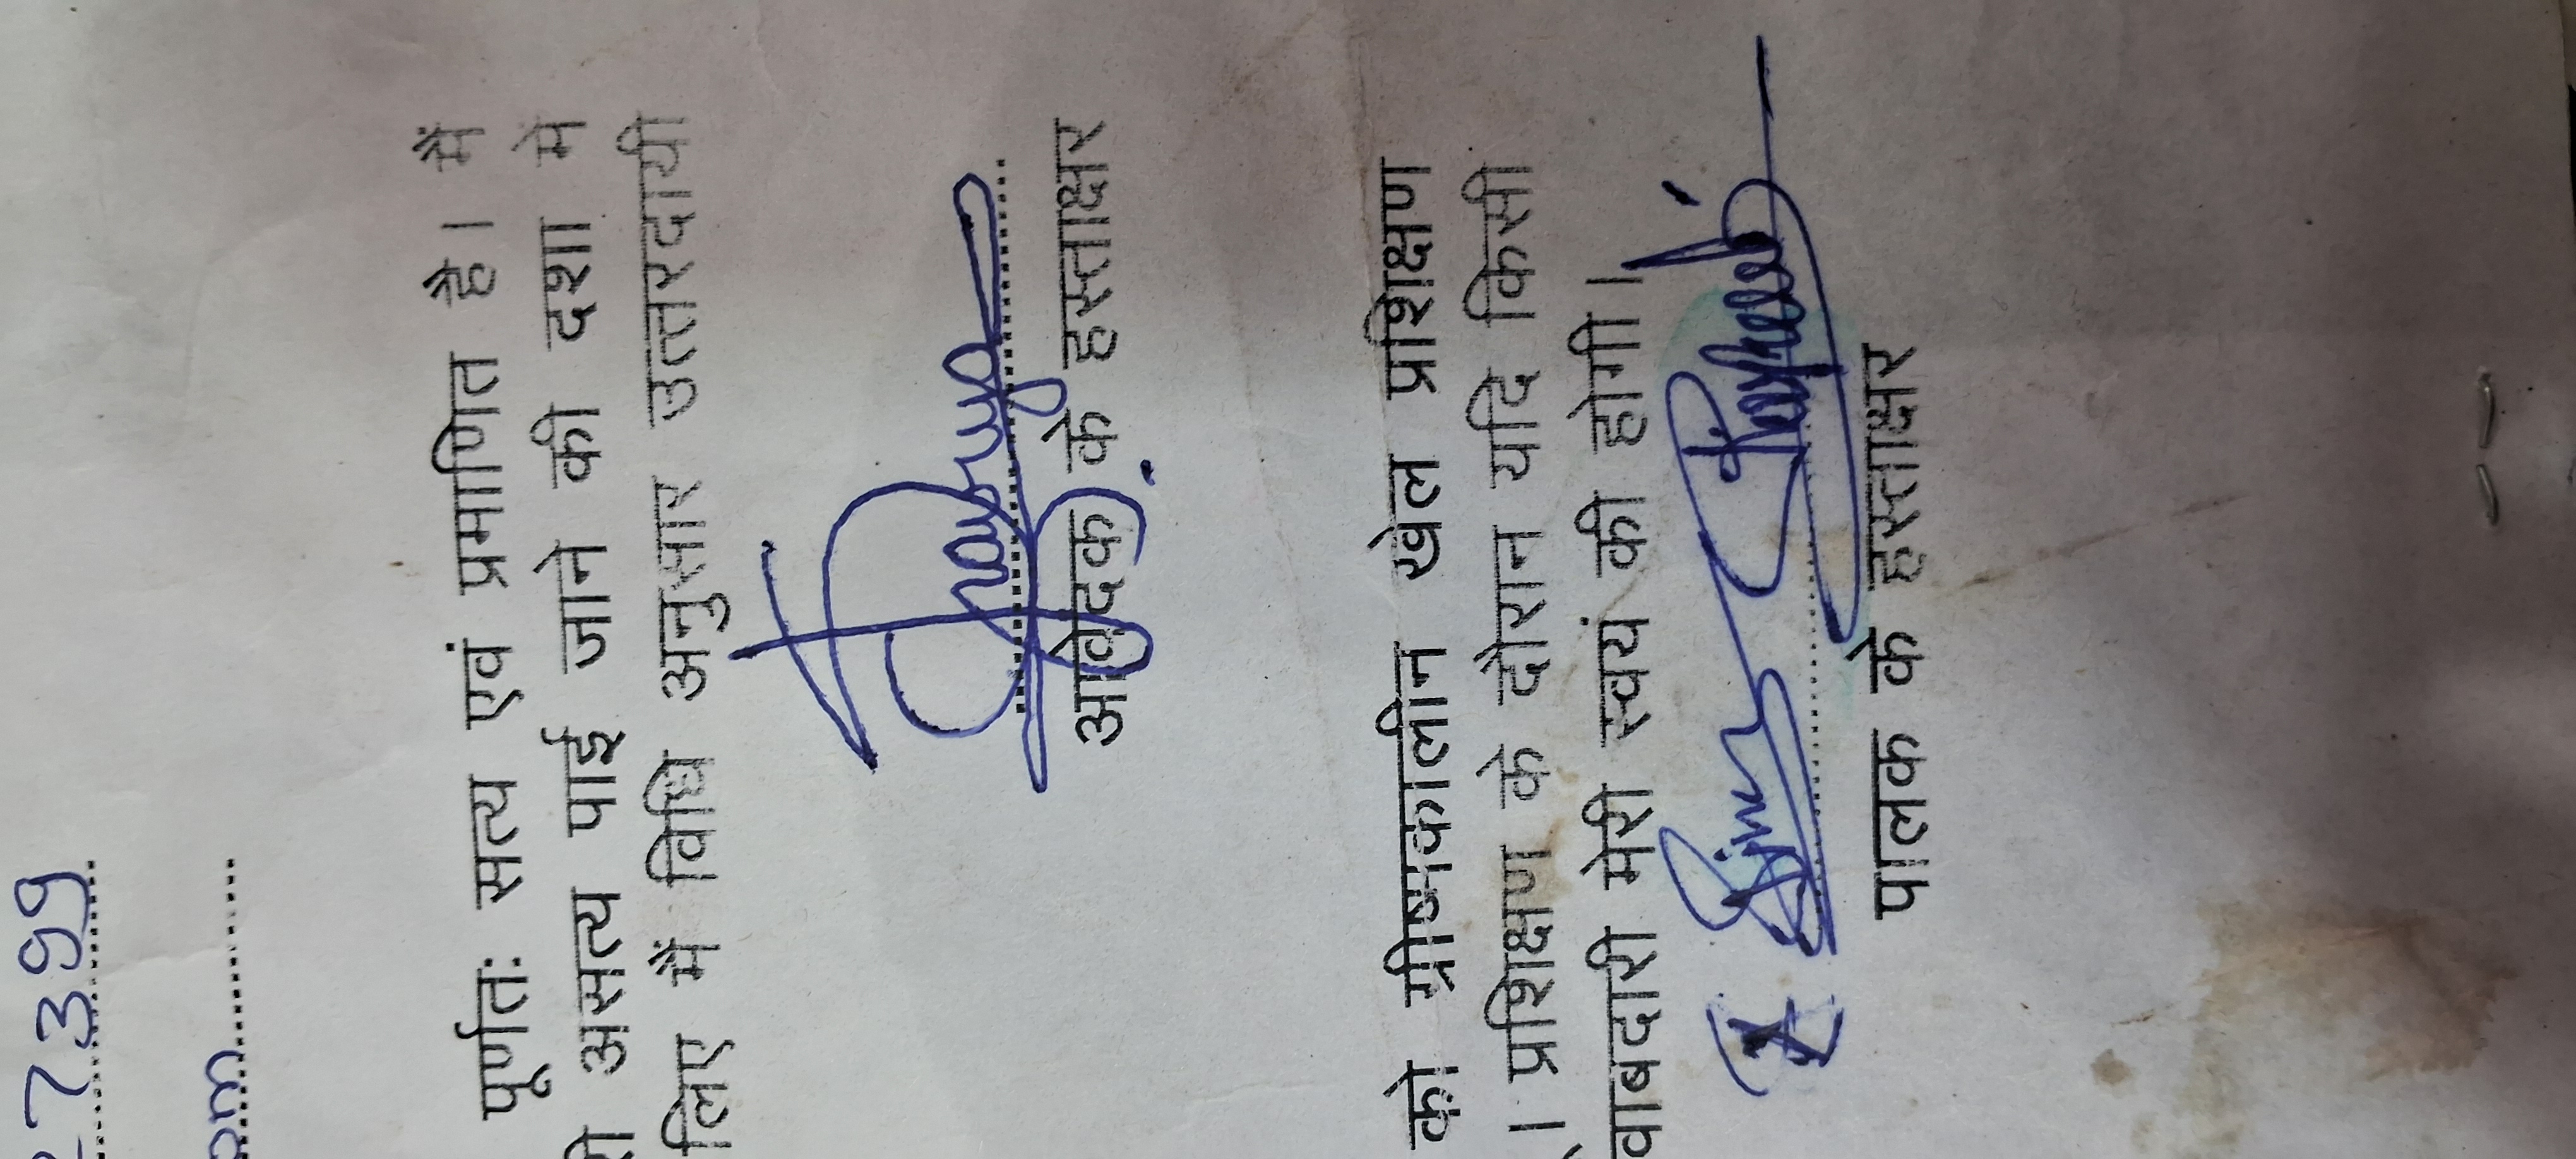 27399
om
पूर्णतः सत्य एवं प्रमाणित है। मैं
असत्य पाई जाने की दशा में
लिए मैं विधि अनुसार उत्तरदायी
आवेदक के हस्ताक्षर
को ग्रीष्मकालीन खेल प्रशिक्षण
। प्रशिक्षण के दौरान यदि किसी
वाबदारी मेरी स्वयं की होगी।
पालक के हस्ताक्षर